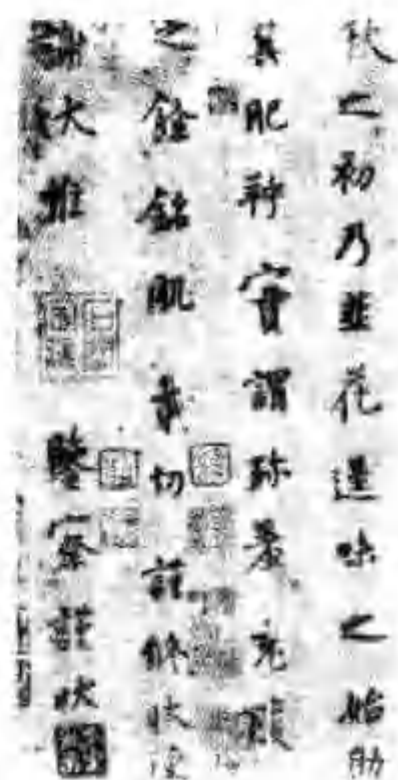 秋之初乃韭花逞味之始助
其肥羜實謂珎羞充腹
之餘銘肌載切謹修狀陳
謝伏惟 鑒察謹狀